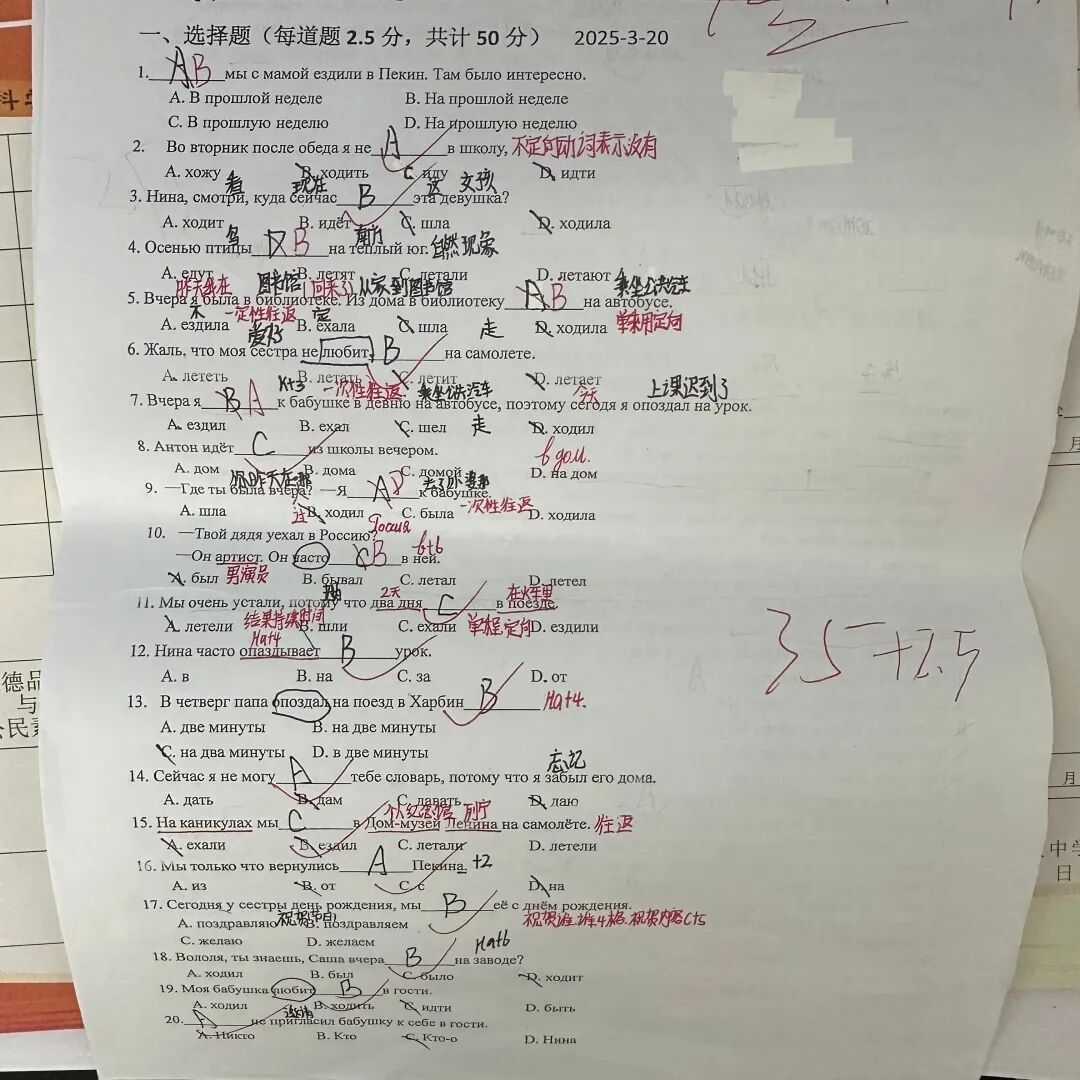 一、选择题（每道题 2.5 分，共计 50 分） 2025-3-20
1. A B мы с мамой ездили в Пекин. Там было интересно.
A. В прошлой неделе B. На прошлой неделе
C. В прошлую неделю D. На прошлую неделю
2. Во вторник после обеда я не A в школу, 不定向动词表示没有
A. хожу B. ходить C. иду D. идти
看 现在 这 女孩
3. Нина, смотри, куда сейчас B эта девушка?
A. ходит B. идёт C. шла D. ходила
鸟 南方
4. Осенью птицы B на тёплый юг. 自然现象
A. едут B. летят C. летали D. летают
昨天我在 图书馆(回来了) 从家到图书馆 乘坐公共汽车
5. Вчера я была в библиотеке. Из дома в библиотеку A B на автобусе.
不 一定性往返 定 走 单乘用定向
A. ездила B. ехала C. шла D. ходила
爱好
6. Жаль, что моя сестра не любит B на самолете.
A. лететь B. летать C. летит D. летает
K+3 一次性往返 乘坐公共汽车 今天 上课迟到了
7. Вчера я B A к бабушке в девню на автобусе, поэтому сегодя я опоздал на урок.
A. ездил B. ехал C. шел 走 D. ходил
8. Антон идёт C из школы вечером.
в дом.
A. дом B. дома C. домой D. на дом
你昨天在哪 去了奶奶那
9. —Где ты была вчера? —Я A D к бабушке.
A. шла B. ходил C. была 一次性往返 D. ходила
Россия
10. —Твой дядя уехал в Россию?
—Он артист. Он часто C B в ней. в+6
A. был 男演员 B. бывал C. летал D. летел
2天 在火车里
11. Мы очень устали, потому что два дня C в поезде.
A. летели 结果持续时间 B. шли C. ехали 单程定向 D. ездили
на+4
12. Нина часто опаздывает B урок.
A. в B. на C. за D. от
13. В четверг папа опоздал на поезд в Харбин B на+4.
A. две минуты B. на две минуты
C. на два минуты D. в две минуты
忘记
14. Сейчас я не могу A тебе словарь, потому что я забыл его дома.
A. дать B. дам C. давать D. даю
个人纪念馆 列宁
15. На каникулах мы C в Дом-музей Ленина на самолёте. 往返
A. ехали B. ездил C. летали D. летели
16. Мы только что вернулись A Пекина. +2
A. из B. от C. с D. на
17. Сегодня у сестры день рождения, мы B её с днём рождения.
祝贺节日 祝贺谁, 谁4格. 祝贺内容C+5
A. поздравляю B. поздравляем
C. желаю D. желаем
на+6
18. Вололя, ты знаешь, Саша вчера B на заводе?
A. ходил B. был C. было D. ходит
19. Моя бабушка любит B в гости.
A. ходил B. ходить C. идти D. быть
邀请
20. A не пригласил бабушку к себе в гости.
A. Никто B. Кто C. Кто-о D. Нина
35+2.5
德品
与
公民
月
月
中学
日